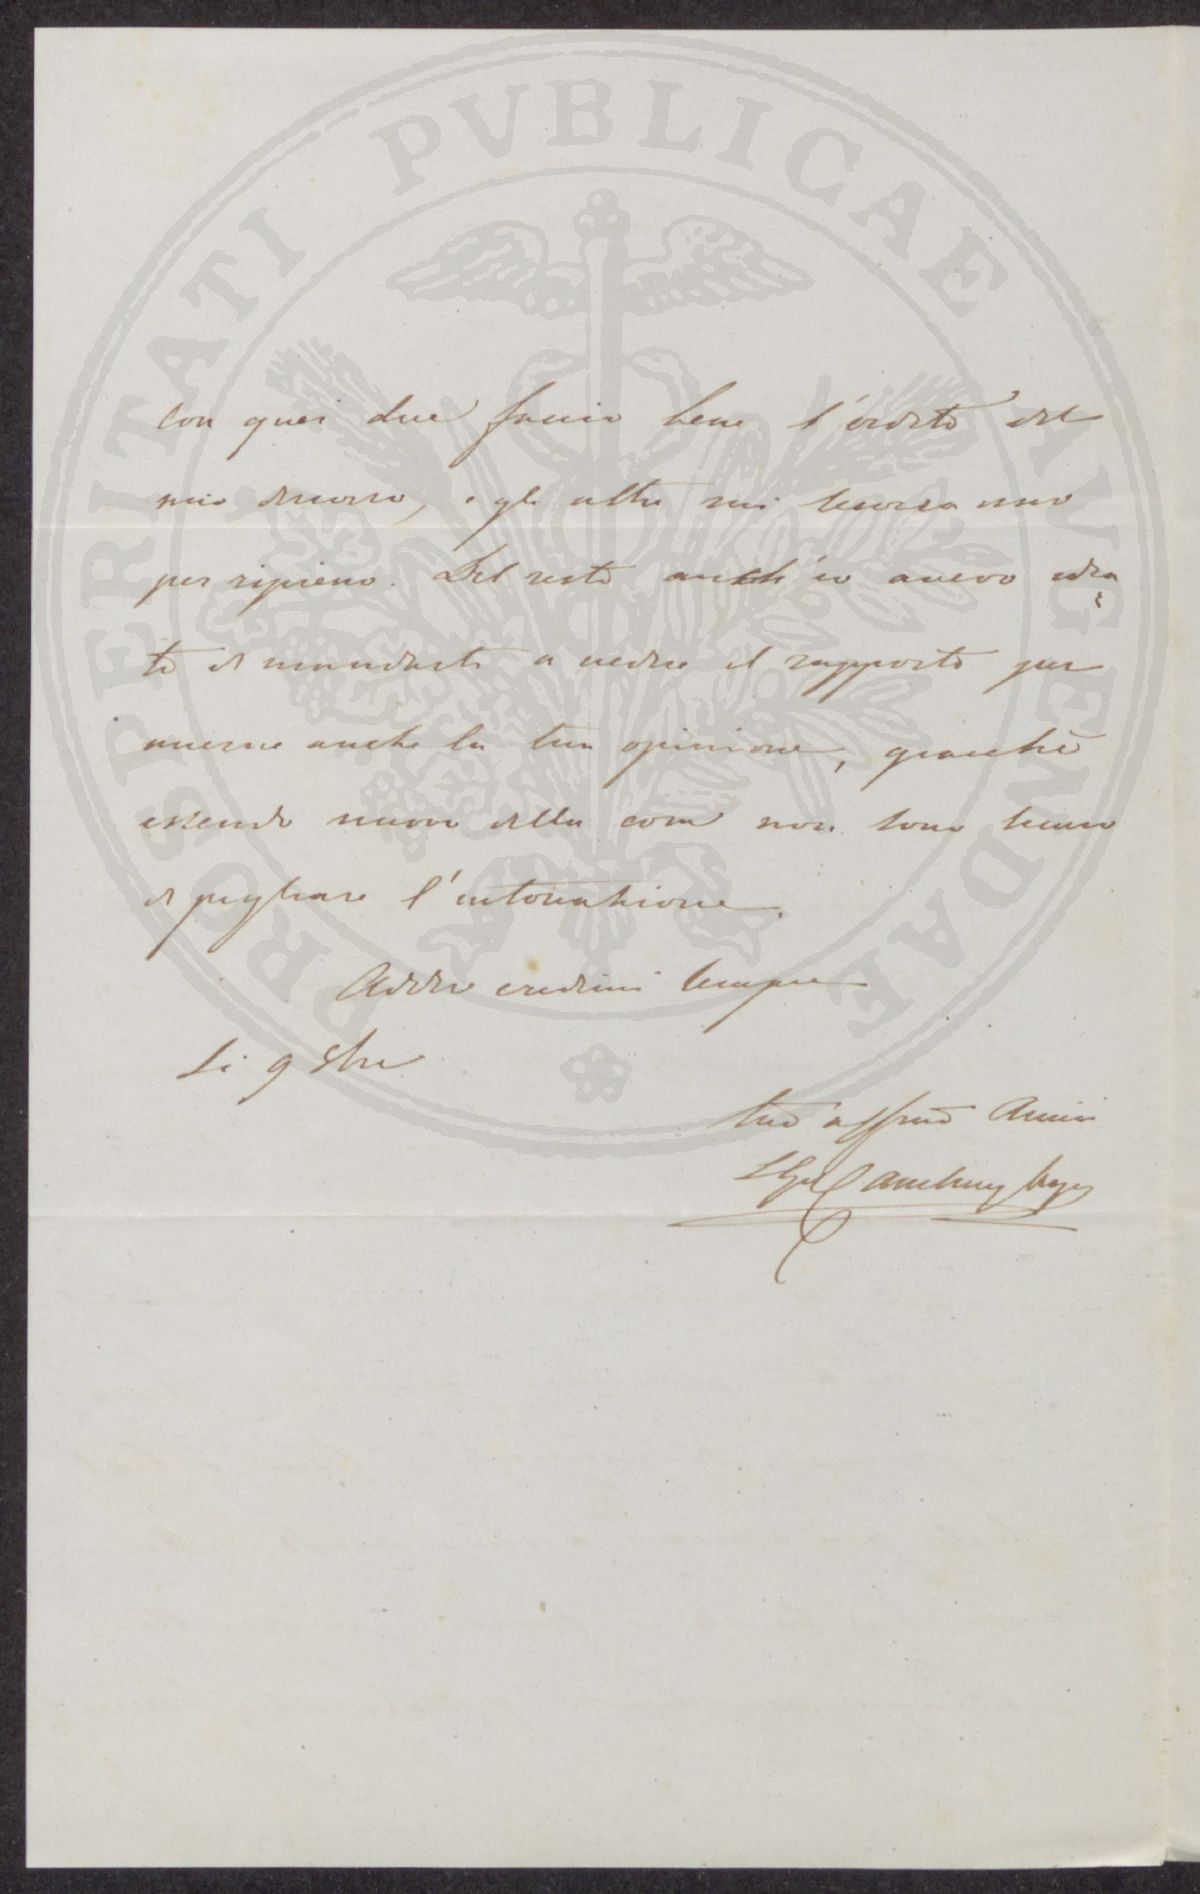 PROSPERITATI PVBLICAE AVGENDAE
Con quei due faccio bene l'ordito del
mio discorso, e gli altri mi serviranno
per ripieno. Del resto anch'io avevo idea
to di mandarti a vedere il rapporto per
averne anche la tua opinione, giacchè
essendo nuovo della cosa non sono sicuro
di pigliare l'intonazione.
Addio credimi sempre
Li 9 Sbre
tuo affmo Amico